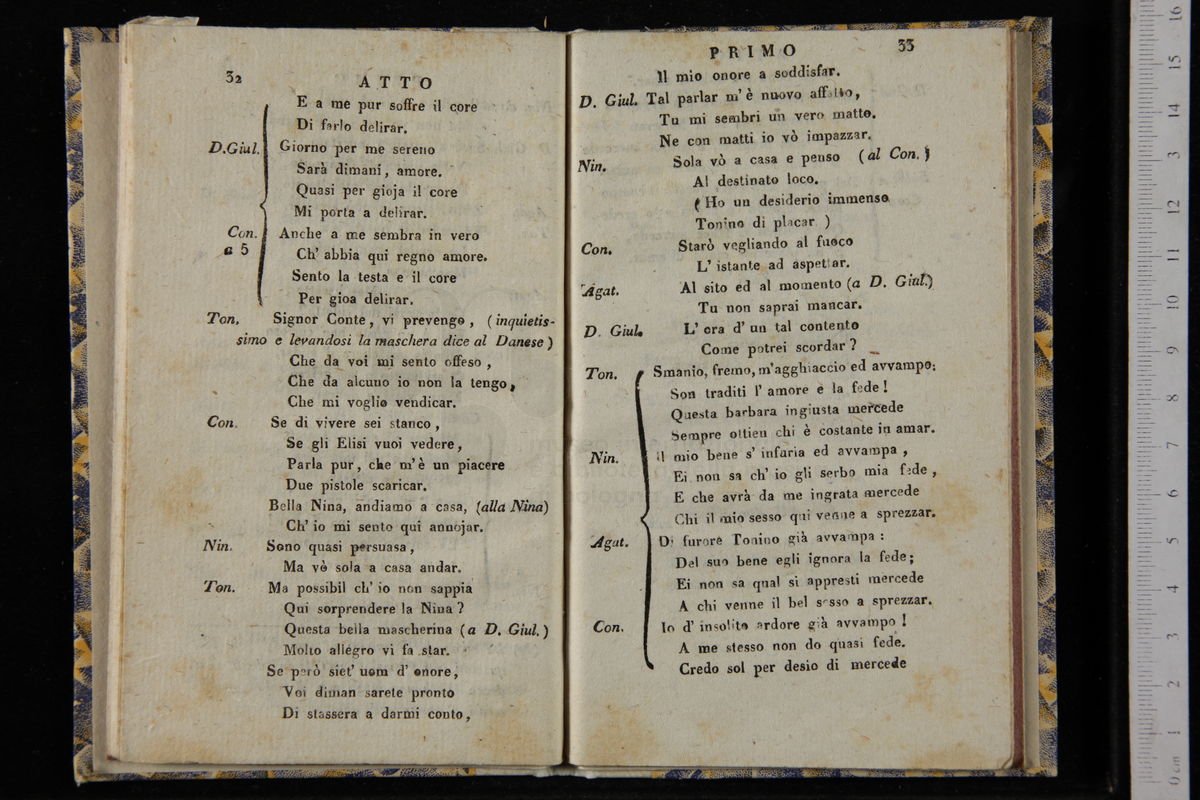 32
ATTO
E a me pur soffre il core
Di farlo delirar.
D.Giul. Giorno per me sereno
Sarà dimani, amore.
Quasi per gioja il core
Mi porta a delirar.
Con. Anche a me sembra in vero
a 5 Ch' abbia qui regno amore.
Sento la testa e il core
Per gioa delirar.
Ton. Signor Conte, vi prevengo, (inquietis-
simo e levandosi la maschera dice al Danese)
Che da voi mi sento offeso,
Che da alcuno io non la tengo,
Che mi voglio vendicar.
Con. Se di vivere sei stanco,
Se gli Elisi vuoi vedere,
Parla pur, che m'è un piacere
Due pistole scaricar.
Bella Nina, andiamo a casa, (alla Nina)
Ch' io mi sento qui annojar.
Nin. Sono quasi persuasa,
Ma vò sola a casa andar.
Ton. Ma possibil ch' io non sappia
Qui sorprendere la Nina?
Questa bella mascherina (a D. Giul.)
Molto allegro vi fa star.
Se però siet' uom d' onore,
Voi diman sarete pronto
Di stassera a darmi conto,
PRIMO
33
Il mio onore a soddisfar.
D. Giul. Tal parlar m'è nuovo affatto,
Tu mi sembri un vero matto.
Ne con matti io vò impazzar.
Nin. Sola vò a casa e penso (al Con.)
Al destinato loco.
(Ho un desiderio immenso
Tonino di placar )
Con. Starò vegliando al fuoco
L' istante ad aspettar.
Agat. Al sito ed al momento (a D. Giul.)
Tu non saprai mancar.
D. Giul. L' ora d' un tal contento
Come potrei scordar?
Ton. Smanio, fremo, m'agghiaccio ed avvampo;
Son traditi l' amore e la fede!
Questa barbara ingiusta mercede
Sempre ottien chi è costante in amar.
Nin. Il mio bene s' infuria ed avvampa,
Ei non sa ch' io gli serbo mia fede,
E che avrà da me ingrata mercede
Chi il mio sesso qui venne a sprezzar.
Agat. Di furore Tonino già avvampa:
Del suo bene egli ignora la fede;
Ei non sa qual si appresti mercede
A chi venne il bel sesso a sprezzar.
Con. Io d' insolito ardore già avvampo!
A me stesso non do quasi fede.
Credo sol per desio di mercede
0 cm 1 2 3 4 5 6 7 8 9 10 11 12 13 14 15 16